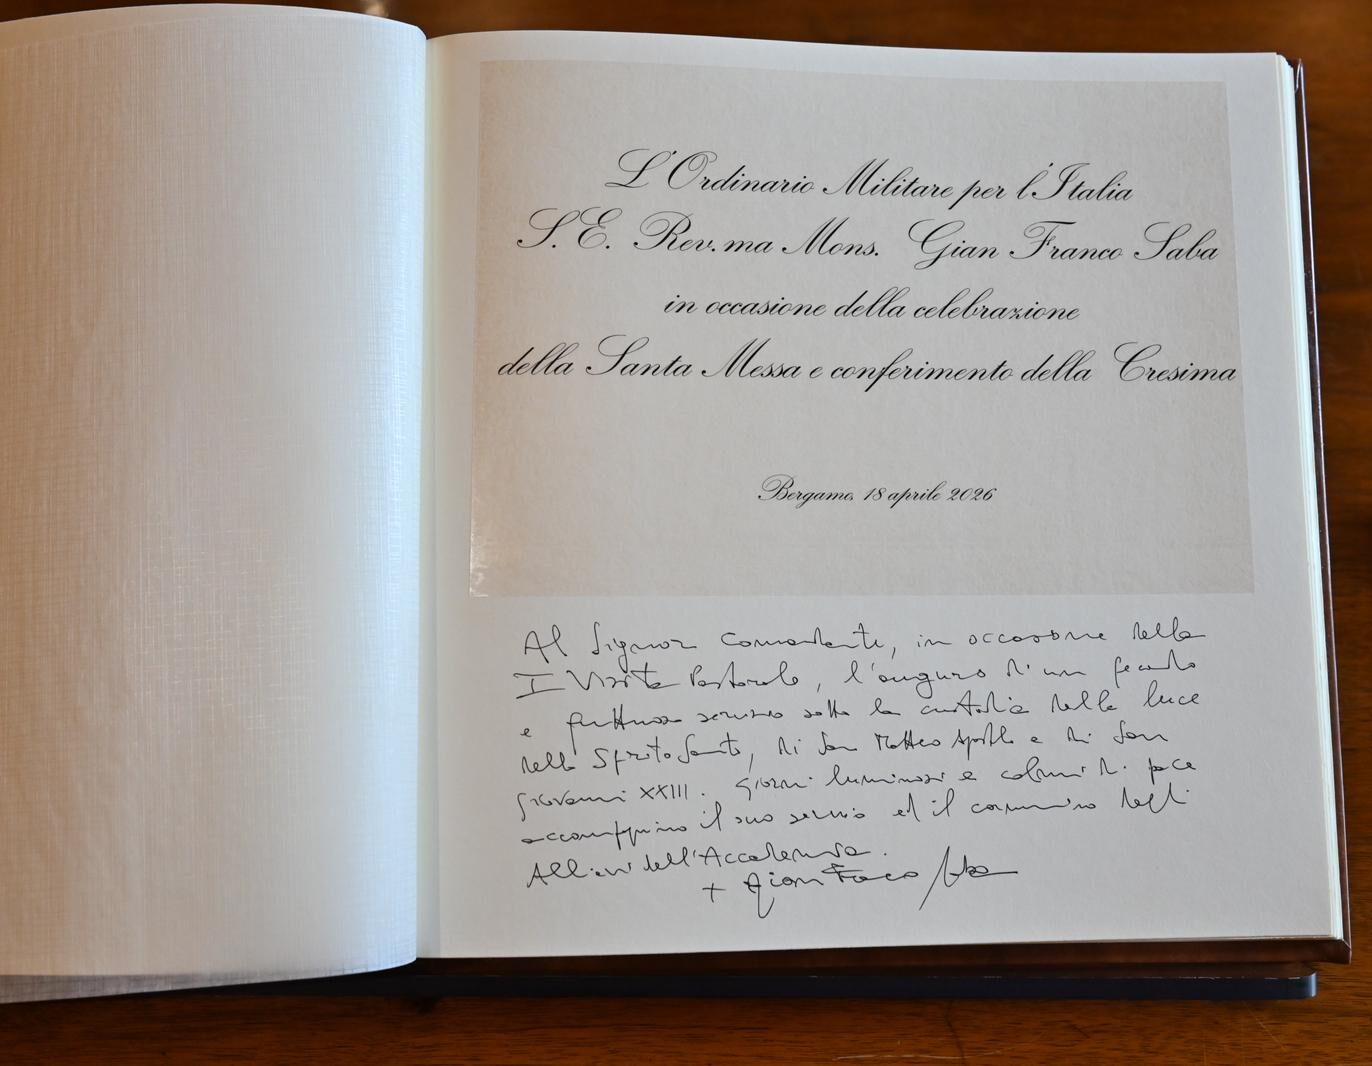 L'Ordinario Militare per l'Italia
S.E. Rev.ma Mons. Gian Franco Saba
in occasione della celebrazione
della Santa Messa e conferimento della Cresima
Bergamo, 18 aprile 2026
Al Signor Comandante, in occasione della
I Visita Pastorale, l'augurio d'un fecondo
e fruttuoso servizio sotto la custodia della luce
dello Spirito Santo, di San Matteo Apostolo e di San
Giovanni XXIII. Giorni luminosi e colmi di pace
accompagnino il suo servizio ed il cammino degli
Allievi dell'Accademia.
+ Gian Franco Saba